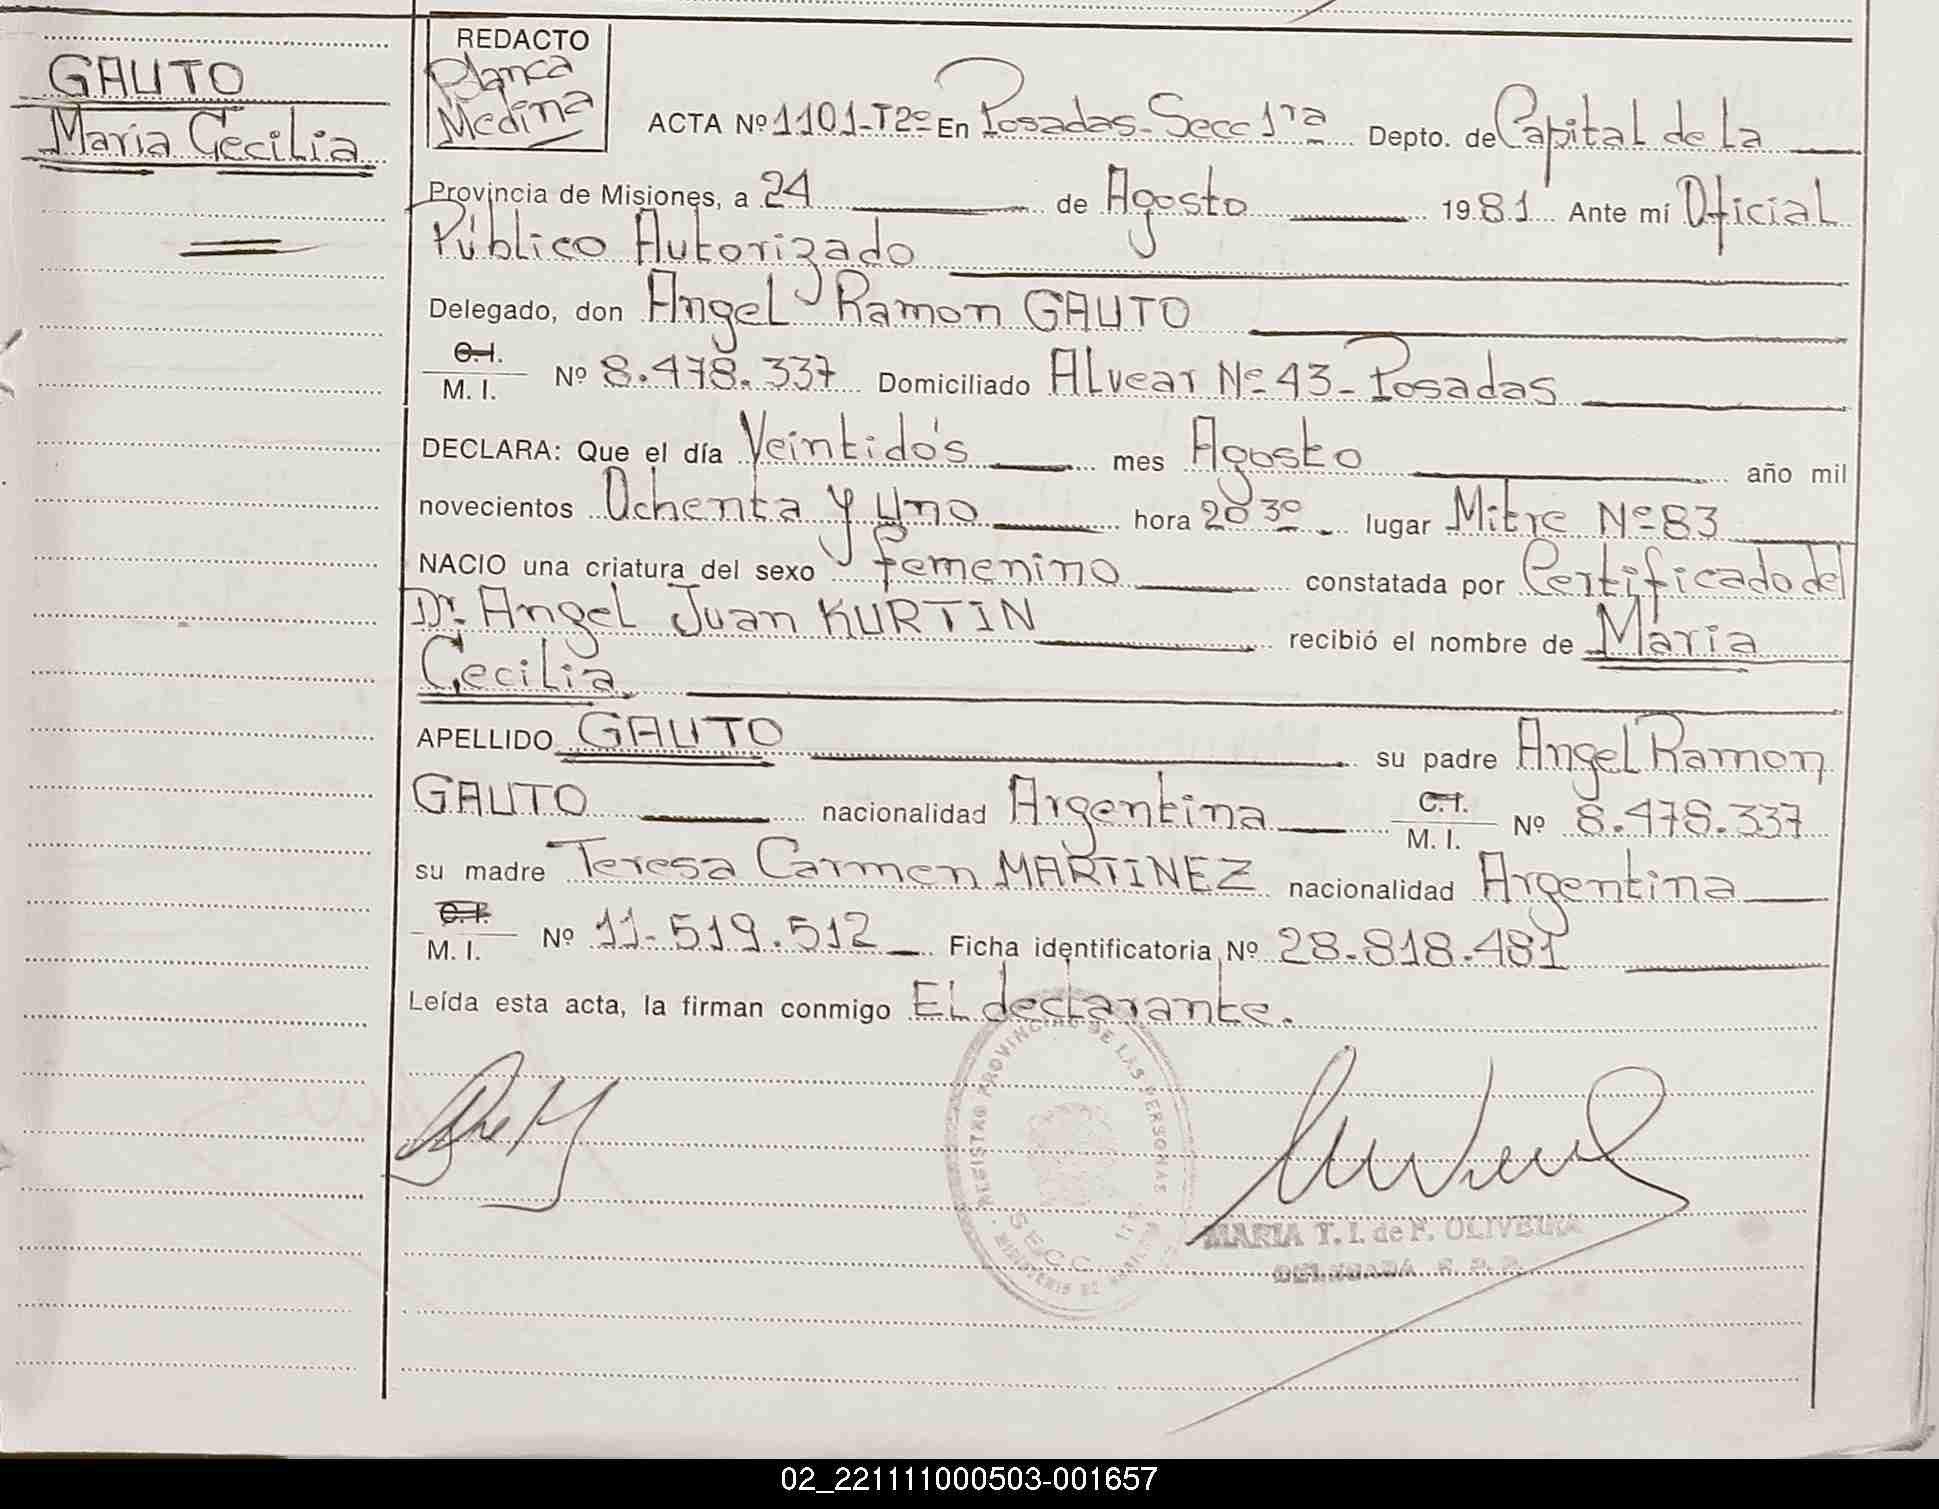 GAUTO
María Cecilia
REDACTO
Blanca
Medina
ACTA Nº 1101-T2º En Posadas-Secc 1ra Depto. de Capital de La
Provincia de Misiones, a 24 de Agosto 1981 Ante mí Oficial
Público Autorizado
Delegado, don Angel Ramon GAUTO
C.I.
M. I. Nº 8.478.337 Domiciliado Alvear Nº 43-Posadas
DECLARA: Que el día Veintidós mes Agosto año mil
novecientos Ochenta y uno hora 20 30 lugar Mitre Nº 83
NACIO una criatura del sexo femenino constatada por Certificado del
Dr. Angel Juan KURTIN recibió el nombre de María
Cecilia
APELLIDO GAUTO su padre Angel Ramon
GAUTO nacionalidad Argentina C.I. M. I. Nº 8.478.337
su madre Teresa Carmen MARTINEZ nacionalidad Argentina
C.I.
M. I. Nº 11-519.512 Ficha identificatoria Nº 28.818.481
Leída esta acta, la firman conmigo El declarante.
REGISTRO PROVINCIAL DE LAS PERSONAS
SECC. 1ra
MARIA T. I. de F. OLIVEIRA
02_221111000503-001657